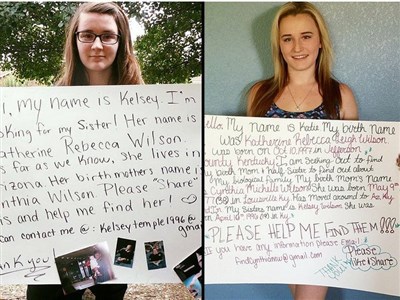 I, my name is Kelsey. I'm
oking for my Sister! Her name is
atherine Rebecca Wilson.
s far as we know, she lives in
rizona. Her birthmother's name i
nthia Wilson. "Please "Share"
is and help me find her! ♡
can contact me @: Kelseytemple1996@
gmai
hank you
ello My name is Katie. My birth name
was Katherine Rebecca Leigh Wilson
was born on Oct 10, 1997 in Jefferson
ounty Kentucky. I am seeking out to find
my birth Mom & Half Sister to find out about
my biological family. My birth Mom's name
Cynthia Michelle Wilson. She was born May 9th
in Louisville Ky. Has moved around to
My Sisters name is Kelsey Wilson. She was
on April in Ky.
PLEASE HELP ME FIND THEM!!!
if you have any information please Email:
THANK
Please
Like & Share